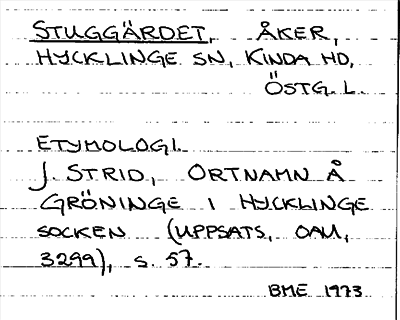 STUGGÄRDET, ÅKER,
HYCKLINGE SN, KINDA HD,
ÖSTG. L.
ETYMOLOGI.
J. STRID, ORTNAMN Å
GRÖNINGE I HYCKLINGE
SOCKEN (UPPSATS, OAU,
3299), S. 57.
BME 1973